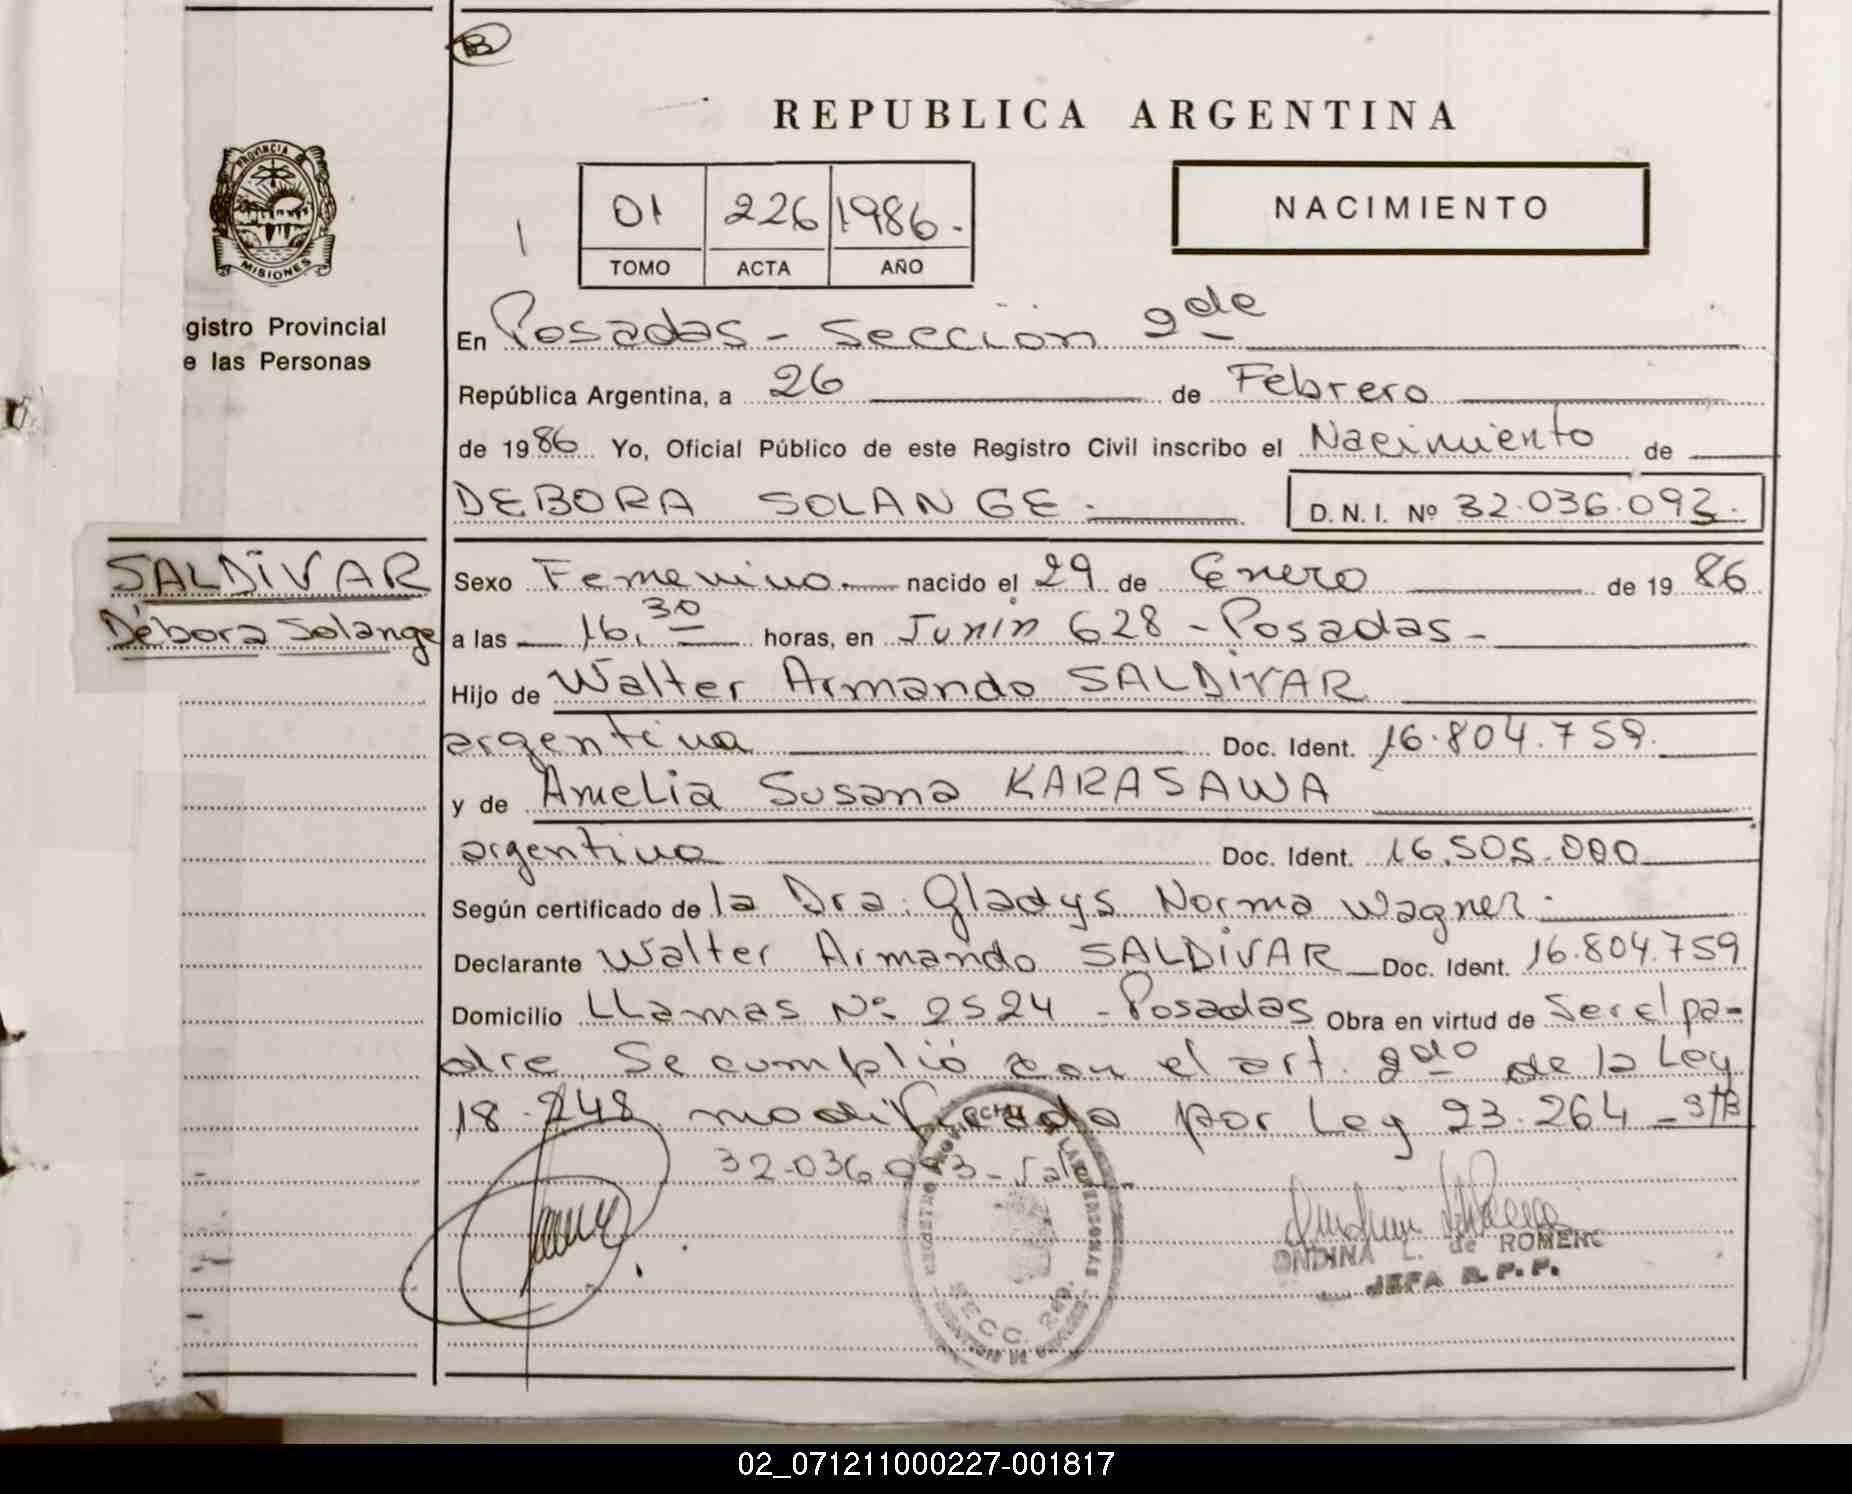 B
REPUBLICA ARGENTINA
PROVINCIA DE
MISIONES
gistro Provincial
e las Personas
01 226 1986.-
TOMO ACTA AÑO
NACIMIENTO
En Posadas - Sección 2da
República Argentina, a 26 de Febrero
de 1986 Yo, Oficial Público de este Registro Civil inscribo el Nacimiento de
DEBORA SOLANGE.- D.N.I. Nº 32.036.093.-
SALDIVAR
Débora Solange
Sexo Femenino.- nacido el 29 de Enero de 1986
a las 16.30 horas, en Junin 628 - Posadas -
Hijo de Walter Armando SALDIVAR
argentina Doc. Ident. 16.804.759.
y de Amelia Susana KARASAWA
argentina Doc. Ident. 16.505.000
Según certificado de la Dra. Gladys Norma Wagner.-
Declarante Walter Armando SALDIVAR Doc. Ident. 16.804.759
Domicilio LLamas Nº 2524 - Posadas Obra en virtud de Ser el pa-
dre. Se cumplió con el art. 2do de la Ley
18.248 modificado por Ley 23.264 -
32.036.093 -
SECC. 2da.
ONDINA L. de ROMERO
JEFA R.P.P.
02_071211000227-001817